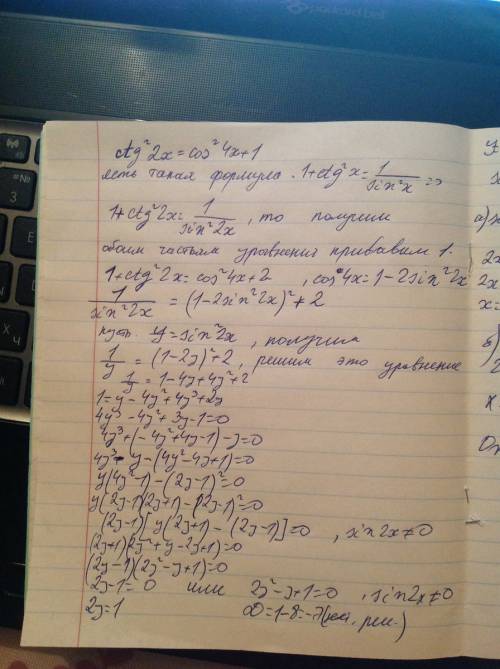 packard bell
ctg²2x = cos²4x+1
есть такая формула. 1+ctg²x = 1/sin²x ⇒
1+ctg²2x = 1/sin²2x, то получим
обоим частям уравнения прибавим 1.
1+ctg²2x = cos²4x+2, cos4x = 1-2sin²2x
1/sin²2x = (1-2sin²2x)²+2
пусть y = sin²2x, получим
1/y = (1-2y)²+2, решим это уравнение
1/y = 1-4y+4y²+2
1 = y-4y²+4y³+2y
4y³-4y²+3y-1=0
4y³+(-4y²+4y-1)-y=0
4y³-y-(4y²-4y+1)=0
y(4y²-1)-(2y-1)²=0
y(2y-1)(2y+1)-(2y-1)²=0
(2y-1)[y(2y+1)-(2y-1)]=0, sin2x≠0
(2y-1)(2y²+y-2y+1)=0
(2y-1)(2y²-y+1)=0
2y-1=0 или 2y²-y+1=0, sin2x≠0
2y=1 D=1-8=-7
а)
2x
2x
x=
б)
x